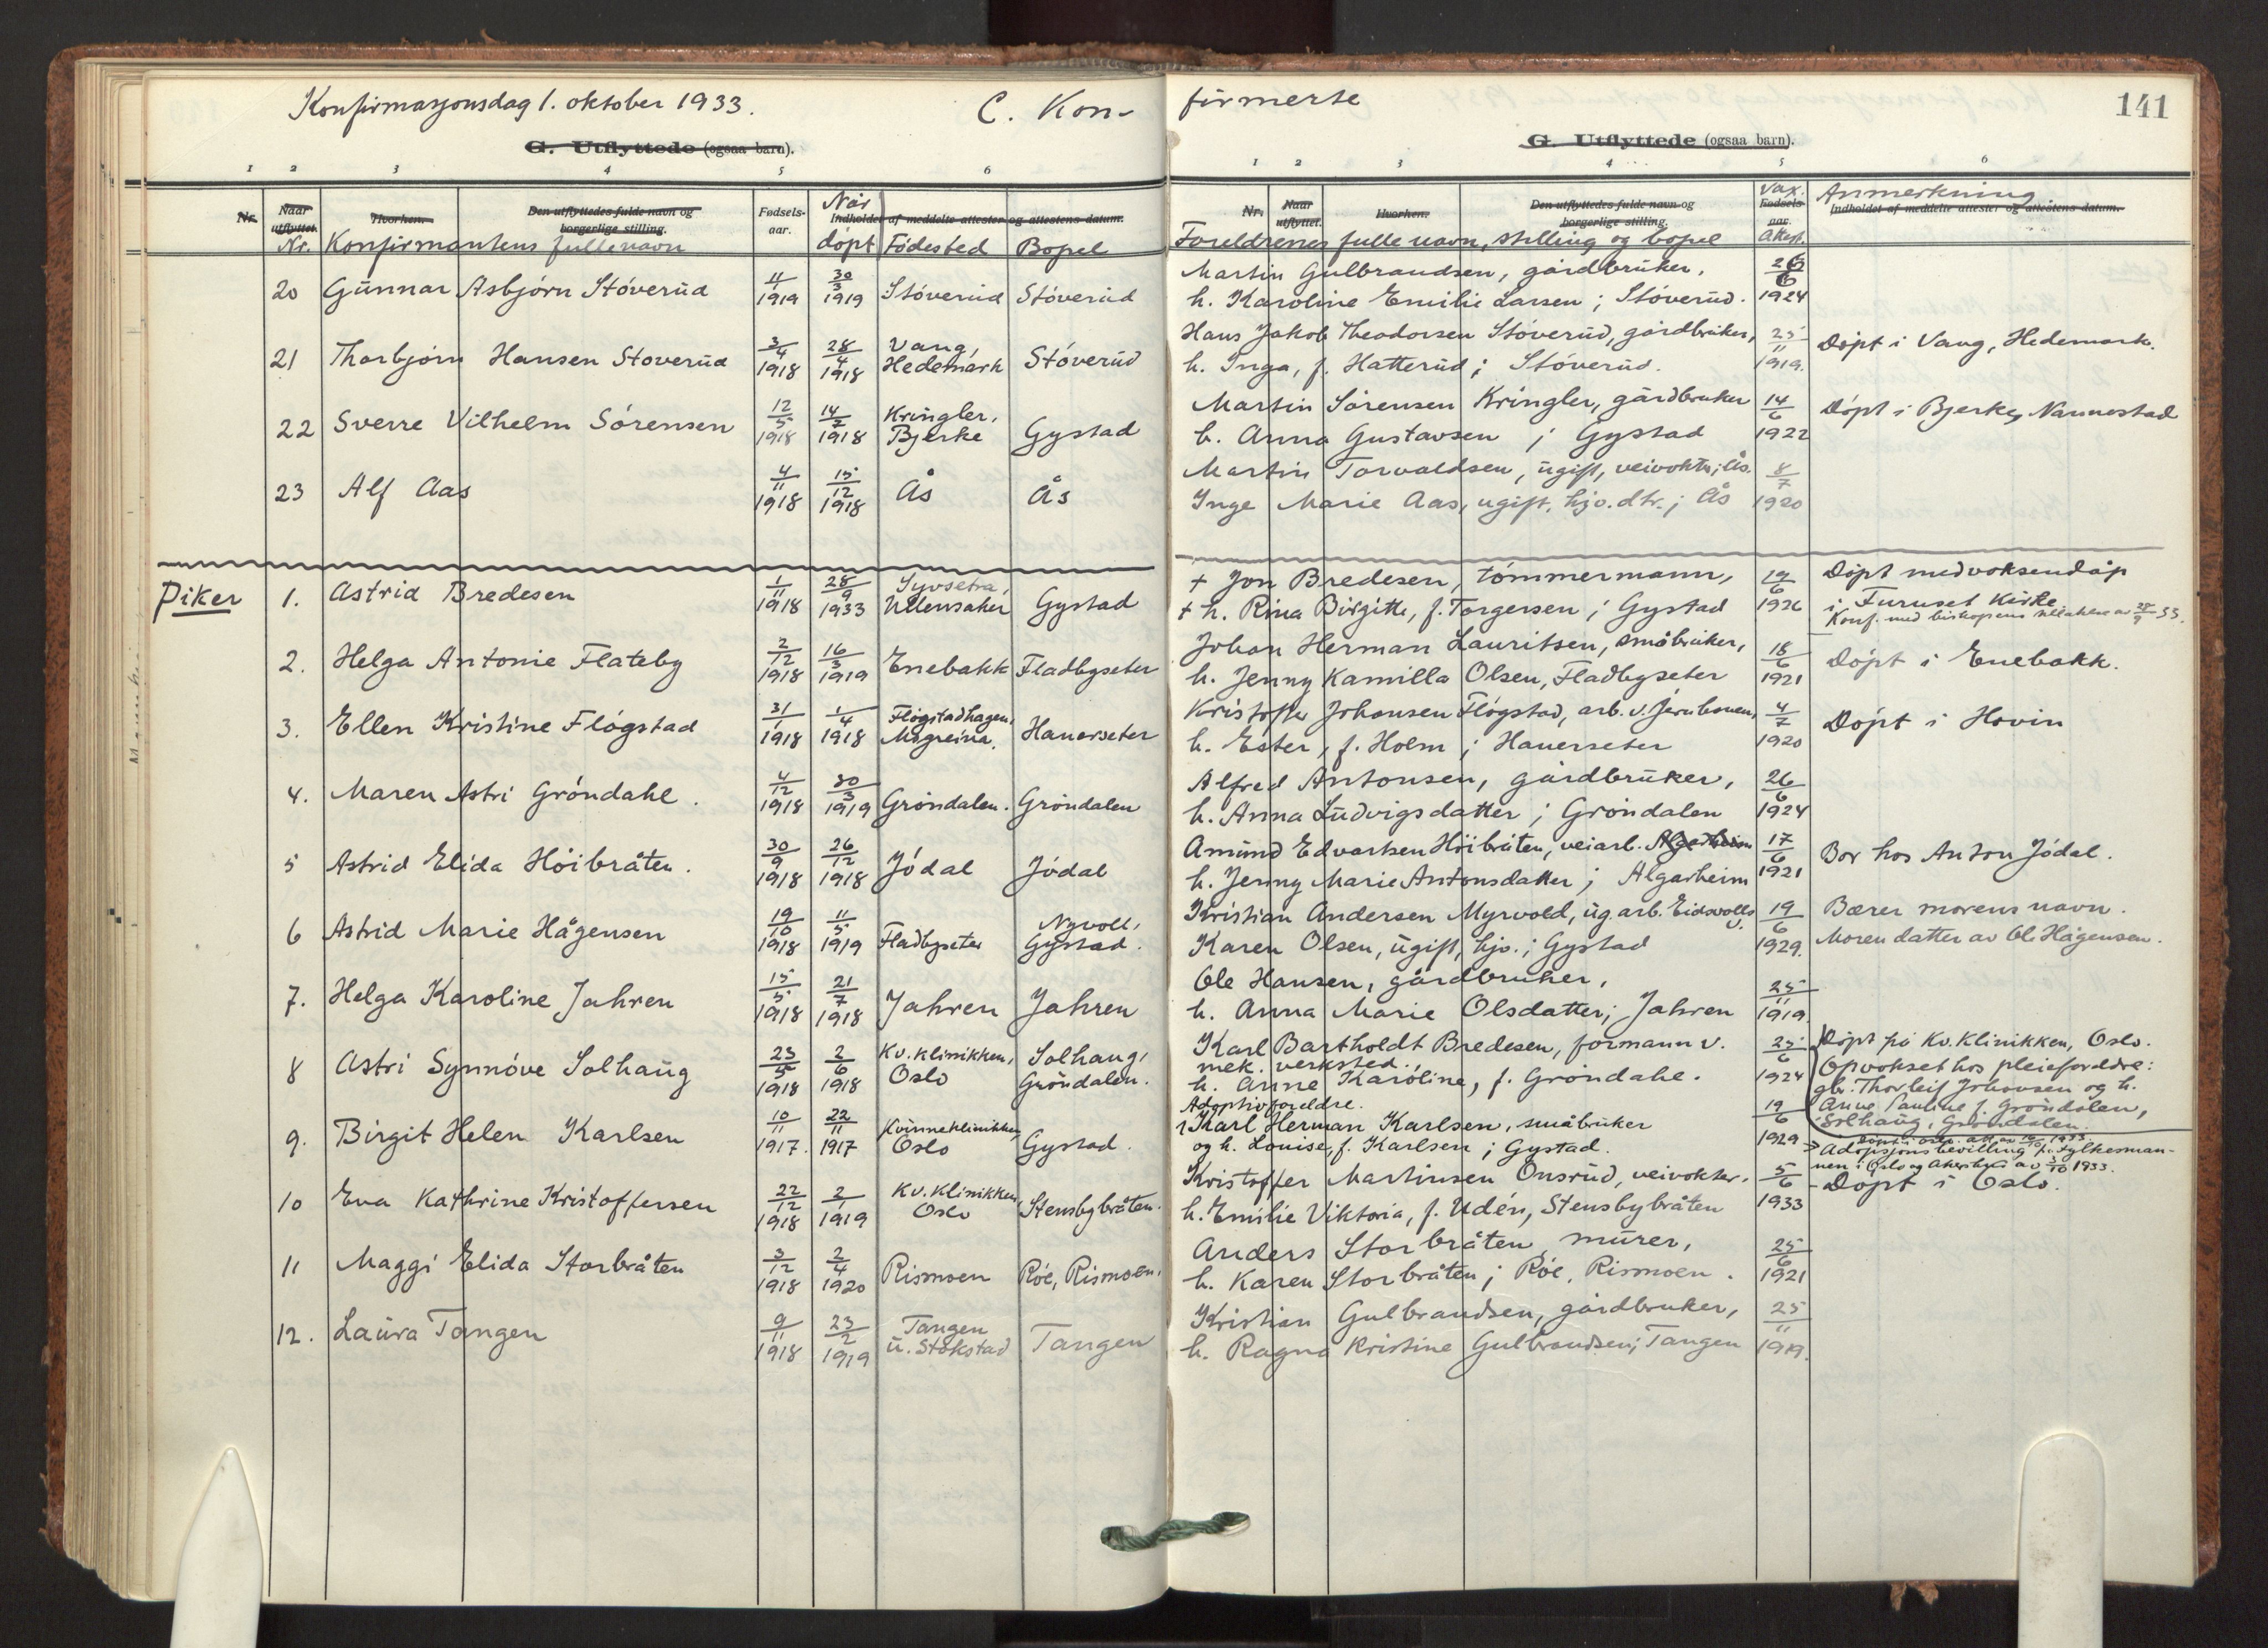 Konfirmasjonsdag 1. oktober 1933. C. Kon-
G. Utflyttede (ogsaa barn).
1 2 3 4 5 6
Nr. Naar utflyttet. Hvorhen. Den utflyttedes fulde navn og borgerlige stilling. Fødsels-aar. Indholdet af meddelte attester og attestens datum.
Nr. Konfirmantens fulle navn Når døpt Fødested Bopel
20 Gunnar Asbjørn Støverud 11/1 1919 30/3 1919 Støverud Støverud
21 Thorbjørn Hansen Støverud 3/4 1918 28/4 1918 Vang, Hedemark Støverud
22 Sverre Vilhelm Sørensen 12/5 1918 14/7 1918 Kringler, Bjerke Gystad
23 Alf Aas 4/11 1918 15/12 1918 Ås Ås
Piker
1. Astrid Bredesen 1/11 1918 28/9 1933 Syvsetra, Ullensaker Gystad
2. Helga Antonie Flateby 2/12 1918 16/3 1919 Enebakk Fladbyseter
3. Ellen Kristine Fløgstad 31/1 1918 1/4 1918 Fløgstadhagen, Mogreina. Hauerseter
4. Maren Astri Grøndahl. 4/12 1918 30/3 1919 Grøndalen. Grøndalen
5 Astrid Elida Høibråten. 30/9 1918 26/12 1918 Jødal Jødal
6 Astrid Marie Hågensen 19/10 1918 11/5 1919 Fladbyseter Nyvoll, Gystad.
7. Helga Karoline Jahren 15/5 1918 21/7 1918 Jahren Jahren
8 Astri Synnøve Solhaug 23/5 1918 2/6 1918 Kv. klinikken, Oslo Solhaug, Grøndalen.
9. Birgit Helen Karlsen 10/11 1917. 22/11 1917 Kvinneklinikken, Oslo Gystad.
10 Eva Kathrine Kristoffersen 22/12 1918 2/1 1919 Kv. Klinikken, Oslo Stensbybråten.
11 Maggi Elida Storbråten 3/12 1918 2/4 1920 Rismoen Røe, Rismoen.
12. Laura Tangen 9/11 1918 23/2 1919 Tangen u. Stokstad Tangen
firmerte
141
G. Utflyttede (ogsaa barn).
1 2 3 4 5 6
Nr. Naar utflyttet. Hvorhen. Den utflyttedes fulde navn og borgerlige stilling. Fødsels-aar. Indholdet af meddelte attester og attestens datum.
Foreldrenes fulle navn, stilling og bopel Vax. Attest. Anmerkning
Martin Gulbrandsen, gårdbruker, 26/6
h. Karoline Emilie Larsen; Støverud. 1924
Hans Jakob Theodorsen Støverud, gårdbruker, 25/11 Døpt i Vang, Hedemark.
h. Inga, f. Hatterud; Støverud. 1919.
Martin Sørensen Kringler, gårdbruker 14/6 Døpt i Bjerke, Nannestad
h. Anna Gustavsen; Gystad 1922
Martin Torvaldsen, ugift, veivokter; Ås. 8/7
Inge Marie Aas, ugift, hjv. dtr.; Ås 1920
+ Jon Bredesen, tømmermann, 19/6 Døpt med voksendåp
+ h. Rina Birgitte, f. Torgersen; Gystad 1926 i Furuset Kirke
Konf. med biskopens tillatelse av 28/9 33.
Johan Herman Lauritsen, småbruker, 18/6
h. Jenny Kamilla Olsen, Fladbyseter 1921 Døpt i Enebakk.
Kristoffer Johansen Fløgstad, arb. v. Jernbanen, 4/7 Døpt i Hovin
h. Ester, f. Holm; Hauerseter 1920
Alfred Antonsen, gårdbruker, 26/6
h. Anna Ludvigsdatter; Grøndalen 1924
Amund Edvartsen Høibråten, veiarb. Algarheim 17/6 Bor hos Anton Jødal.
h. Jenny Marie Antonsdatter; Algarheim 1921
Kristian Andersen Myrvold, ug. arb. Eidsvolls v. 19/6 Bærer morens navn.
Karen Olsen, ugift, hjv.; Gystad 1929. Moren datter av Ole Hågensen.
Ole Hansen, gårdbruker,
h. Anna Marie Olsdatter; Jahren 25/11 1919
Karl Bartholdt Bredesen, formann v. 25/6 Døpt på Kv. Klinikken, Oslo.
mek. verksted. Opvokset hos pleieforeldre:
h. Anne Karoline, f. Grøndahl. 1924 gbr. Thorleif Johansen og h.
Adoptivforeldre. Anne Pauline f. Grøndalen,
Karl Herman Karlsen, småbruker 19/6 Solhaug, Grøndalen.
og h. Louise, f. Karlsen; Gystad. 1929 Døpt i Oslo. att. av 16/10 1933
Adopsjonsbevilling fr. Fylkesman-
nen i Oslo og Akershus av 3/10 1933.
Kristoffer Martinsen Onsrud, veivokter. 5/6 - Døpt i Oslo.
h. Emilie Viktoria, f. Udén, Stensbybråten 1933
Anders Storbråten, murer, 25/6
h. Karen Storbråten; Røe, Rismoen. 1921
Kristian Gulbrandsen, gårdbruker, 25/11
h. Ragna Kristine Gulbrandsen; Tangen 1919.